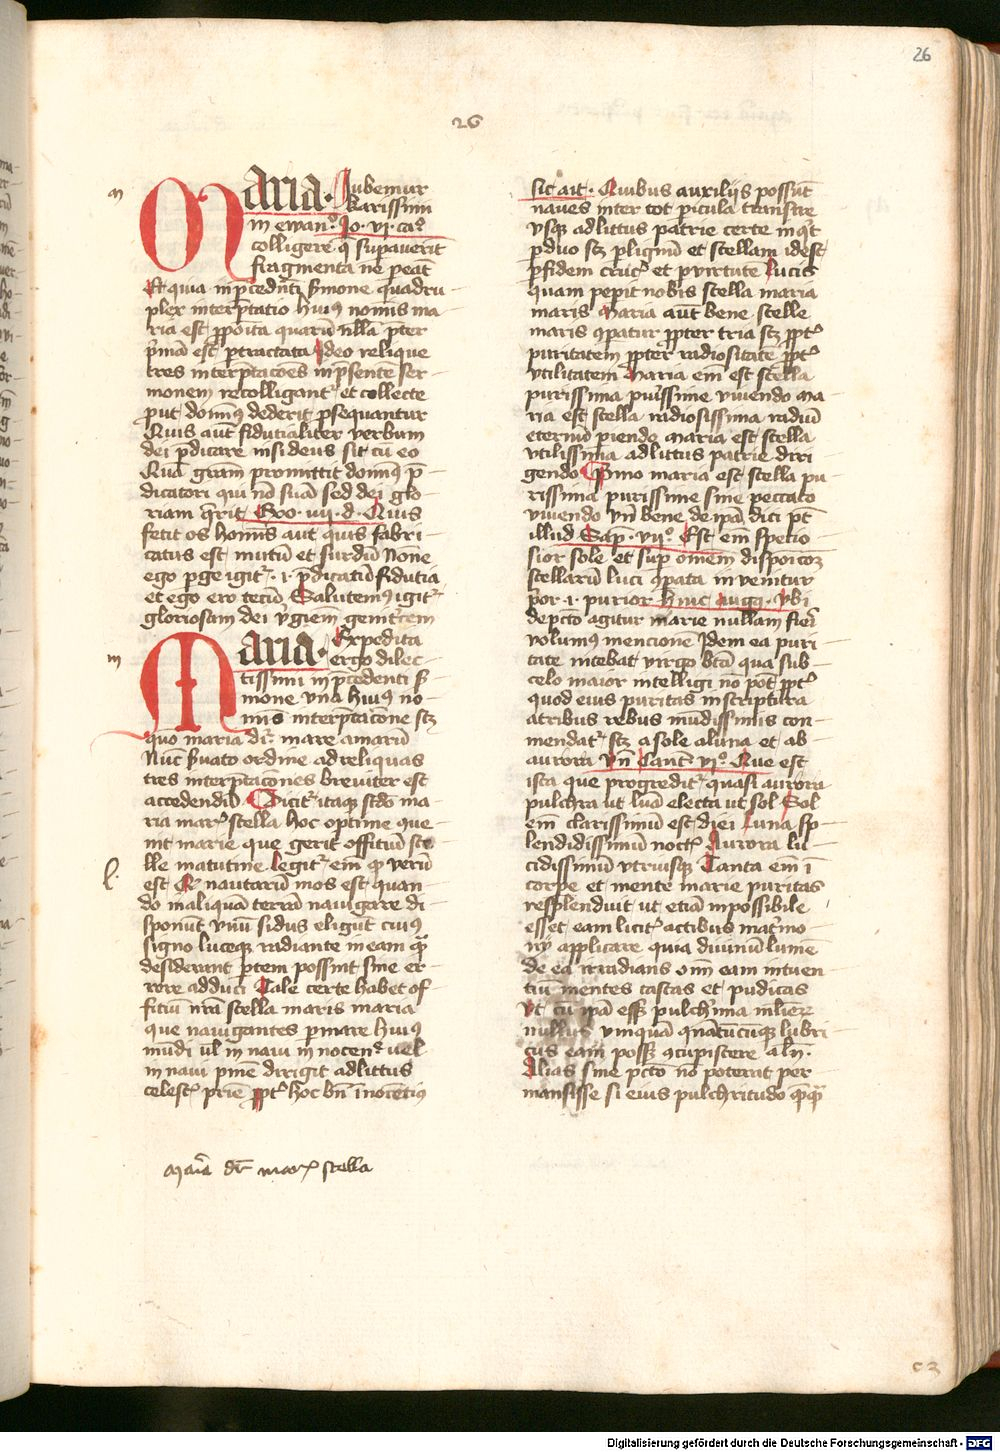 26
26
Maria. Iubemur
karissimi
in ewan.° Jo. vi. ca°
colligere q̄ supauerūt
fragmenta ne peāt
Et quia in p̄cedēti ẜmone quadru
plex interp̄tatio huiꝰ nomīs ma
ria est p̄poita quarū vlla p̄ter
p̄mā est ptractata Ideo relique
tres interp̄tacōes in p̄senti ser
monem recolligantᷣ et collecte
put domnꝰ dederit psequantur
Quis aūt fidutialiter verbum
dei p̄dicare nisi deus sit cū eo
Quā grām promittit domnꝰ p̄
dicatori qui nō suā sed dei glo
riam q̄rit Exo. iiii. d. Quis
fecit os homīs aut quis fabri
catus est mutū et surdū None
ego perge igitᷣ .i. p̄dicatū fidutia
et ego ero tecū Salutemꝰ igitᷣ
gloriosam dei v̄giēm genitͥcem
m
Maria. Expedita
ergo dilec
tissimi in p̄cedenti ẜ
mone vna huiꝰ no
mīs interp̄tacōne scꝫ
quo maria dr̄ mare amarū
Nūc ẜuato ordine ad reliquas
tres interp̄tacōnes breuiter est
accedendū Dicitᷣ itaqꝫ scdo ma
ria marꝭ stella hoc optime que
nit marie que gerit offitiū ste
lle matutine Legitᷣ em̄ qͥ verū
est Et nautarū mos est quan
do in aliquā terrā nauigare di
sponūt vnū sidus eligūt cuiꝰ
signo luceqꝫ radiante in eam quā
desiderant ptem possint sine er
rore adduci Tale certe habet of
fitiū nr̄a stella maris maria
que nauigantes p mare huiꝰ
mūdi vl̄ in naui innocen° uel
in naui pnīe dirigit ad littus
celestꝭ priē ꝓptᷣ hoc bn̄ Inocētiꝰ
l.
Maria dr̄ marꝭ stella
sic ait. Quibus auxilijs possūt
naues inter tot picula transire
vsqꝫ ad littus patrie certe inqͥt
p duo scꝫ p lignū et stellam idest
p fidem crucꝭ et p virtutē lucis
quam pepit nobis stella maria
maris Maria aut bene stelle
maris cōpatur ꝓpter tria scꝫ ꝓptᷣ
puritatem ꝓpter radiositatē ꝓptᷣ
vtilitatem Maria em̄ est stella
purissima purissime viuendo Ma
ria est stella radiosissima radiū
eternū piendo Maria est stella
vtilissima ad littus patrie diri
gendo Primo maria est stella pu
rissima purissime sine peccato
viuendo vn̄ bene de ipā dici pt̄
illud Sap. vii°. Est em̄ specio
sior sole et sup omēm disposicōꝫ
stellarū luci cōpata invenitur
p̄or .i. purior hinc Augꝰ. Vbi
de pctō agitur marie nullam fieri
volumus mencione Idem ea puri
tate nitebat virgo btā qua sub
celo maior intelligi nō pot̄ ꝓptᷣ
quod eius puritas in scriptura
a tribus rebus mūdissimis con
mendatᷣ scꝫ a sole a luna et ab
aurora vn̄ Cantᷣ vi°. Que est
ista que progreditᷣ quasi aurora
pulchra ut lūa electa ut sol Sol
em̄ clarissimū est diei Luna sp
lendidissimū noctꝭ Aurora lu
cidissimū vtriusqꝫ Tanta em̄ ī
corpe et mente marie puritas
resplenduit ut etiā inpossibile
esset eam licitꝭ actibus matͥmo
nij applicare quia diuinū lumē
de ea irradians om̄ eam intuen
tiū mentes castas et pudicas
Vt cū ipā esset pulchͥma mlīerꝝ
nullus vmquā quātūcūqꝫ lubri
cus eam posset cōcupiscere a ln̄.
Alias sine pctō nō poterat per
mansisse si eius pulchritudo quāqͣ
c 3
Digitalisierung gefördert durch die Deutsche Forschungsgemeinschaft - DFG